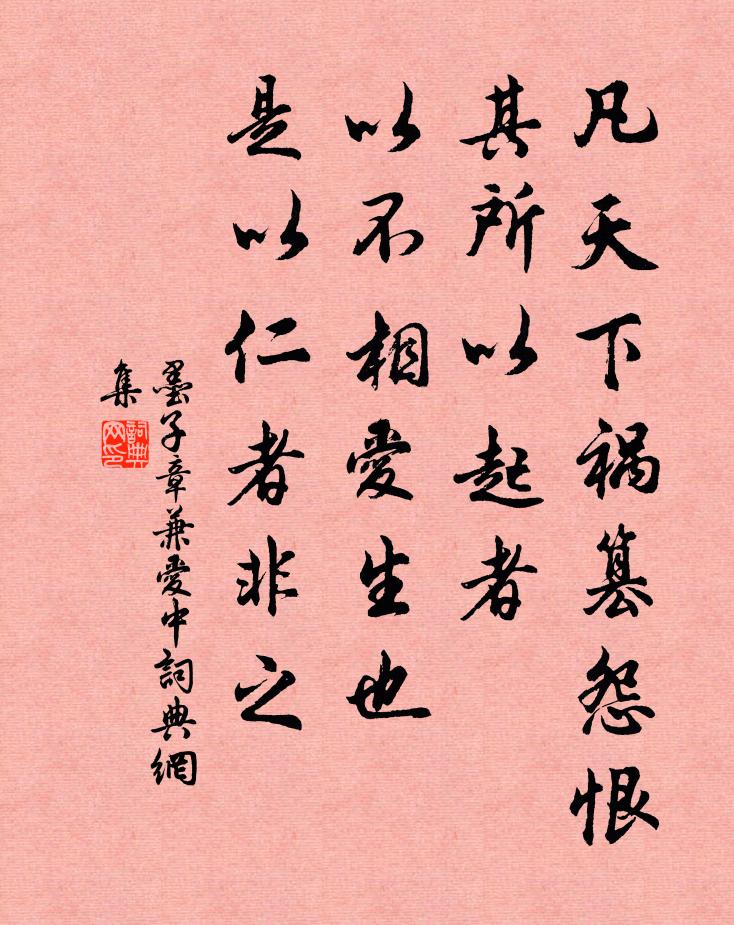 凡天下祸篡怨恨
其所以起者
以不相愛生也
是以仁者非之
墨子章兼愛中詞典網
集
詞典
网印